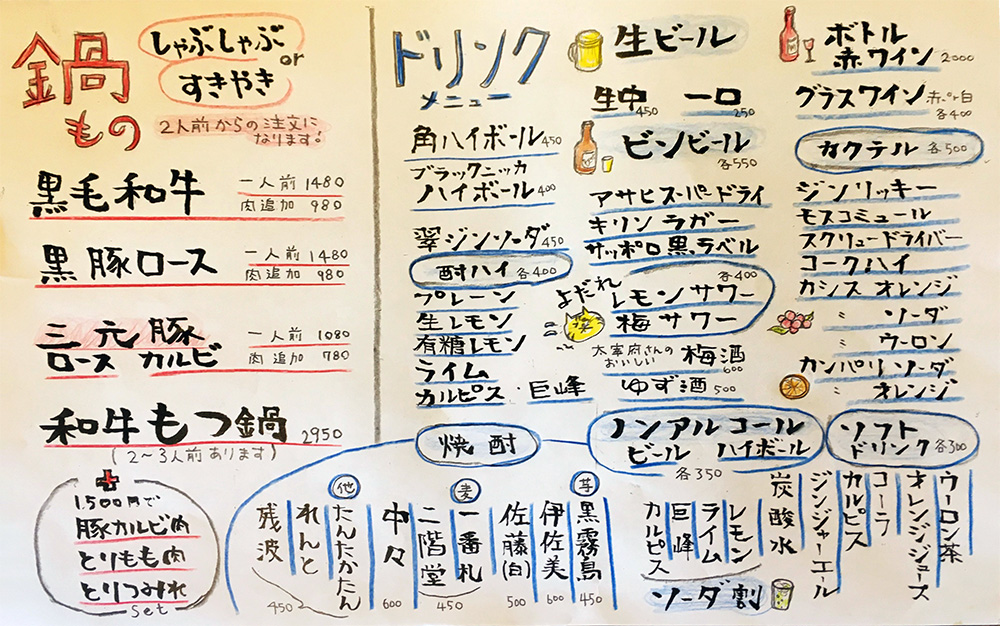 鍋もの
しゃぶしゃぶ
or
すきやき
2人前からの注文に
なります!
黒毛和牛
一人前 1480
肉追加 980
黒豚ロース
一人前 1480
肉追加 980
三元豚
ロース カルビ
一人前 1080
肉追加 780
和牛もつ鍋 2950
(2〜3人前あります)
+
1,500円で
豚カルビ肉
とりもも肉
とりつみれ
set
ドリンク
メニュー
角ハイボール 450
ブラックニッカ
ハイボール 400
翠ジンソーダ 450
酎ハイ 各400
プレーン
生レモン
有糖レモン
ライム
カルピス・巨峰
生ビール
生中 450
一口 250
ビンビール
各550
アサヒスーパードライ
キリンラガー
サッポロ黒ラベル
よだれ
各400
レモンサワー
梅サワー
太宰府さんの
おいしい
梅酒 600
ゆず酒 500
ボトル
赤ワイン 2000
グラスワイン 赤or白
各400
カクテル 各500
ジンリッキー
モスコミュール
スクリュードライバー
コークハイ
カシス オレンジ
〃 ソーダ
〃 ウーロン
カンパリ ソーダ
〃 オレンジ
焼酎
芋
黒霧島 450
伊佐美 600
佐藤(白) 500
麦
一番札
二階堂
450
中々 600
他
たんたかたん
れんと
残波
450
ノンアルコール
ビール ハイボール
各350
炭酸水
レモン
ライム
巨峰
カルピス
ソーダ割
ソフト
ドリンク 各300
ウーロン茶
オレンジジュース
コーラ
カルピス
ジンジャーエール